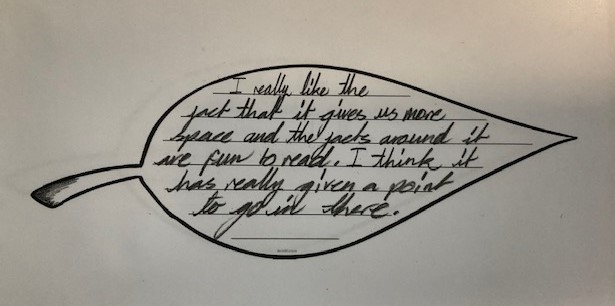 I really like the
fact that it gives us more
space and the facts around it
are fun to read. I think it
has really given a point
to go in there.